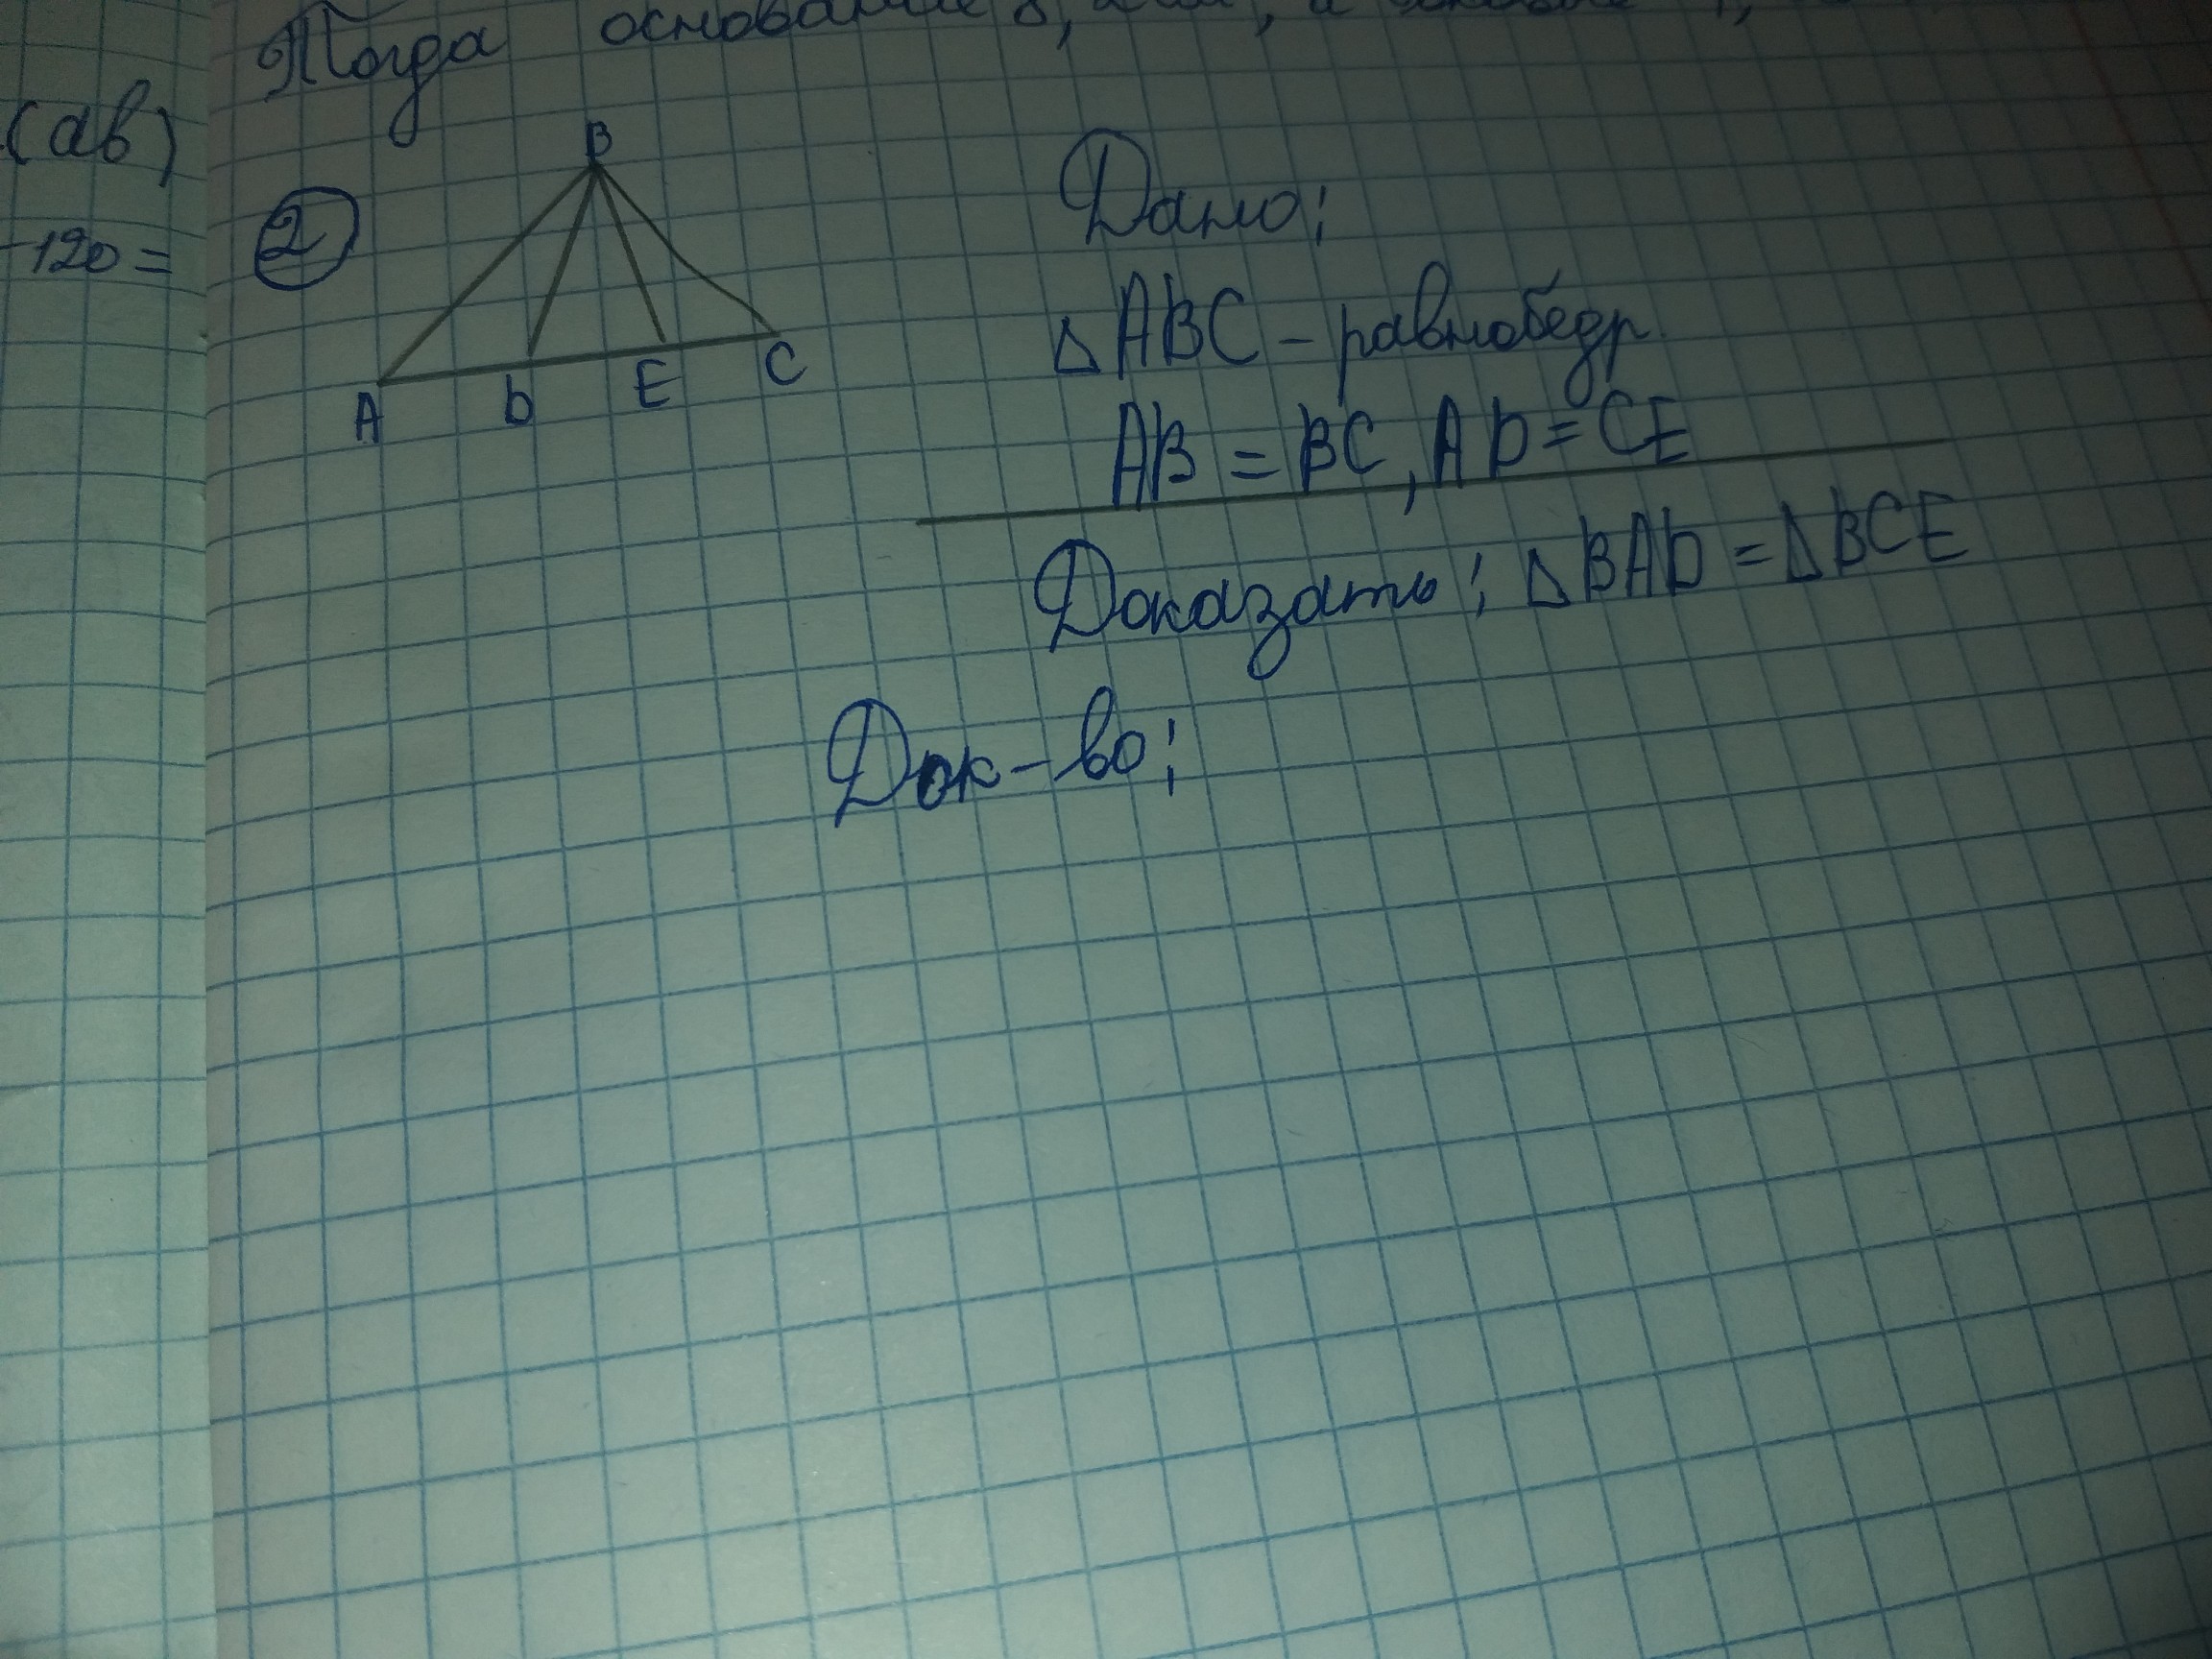 Тогда основание 8,
(ab)
-120=
2
B
A D E C
Дано:
△ABC – равнобедр.
AB = BC, AD = CE
Доказать: △BAD = △BCE
Док-во: